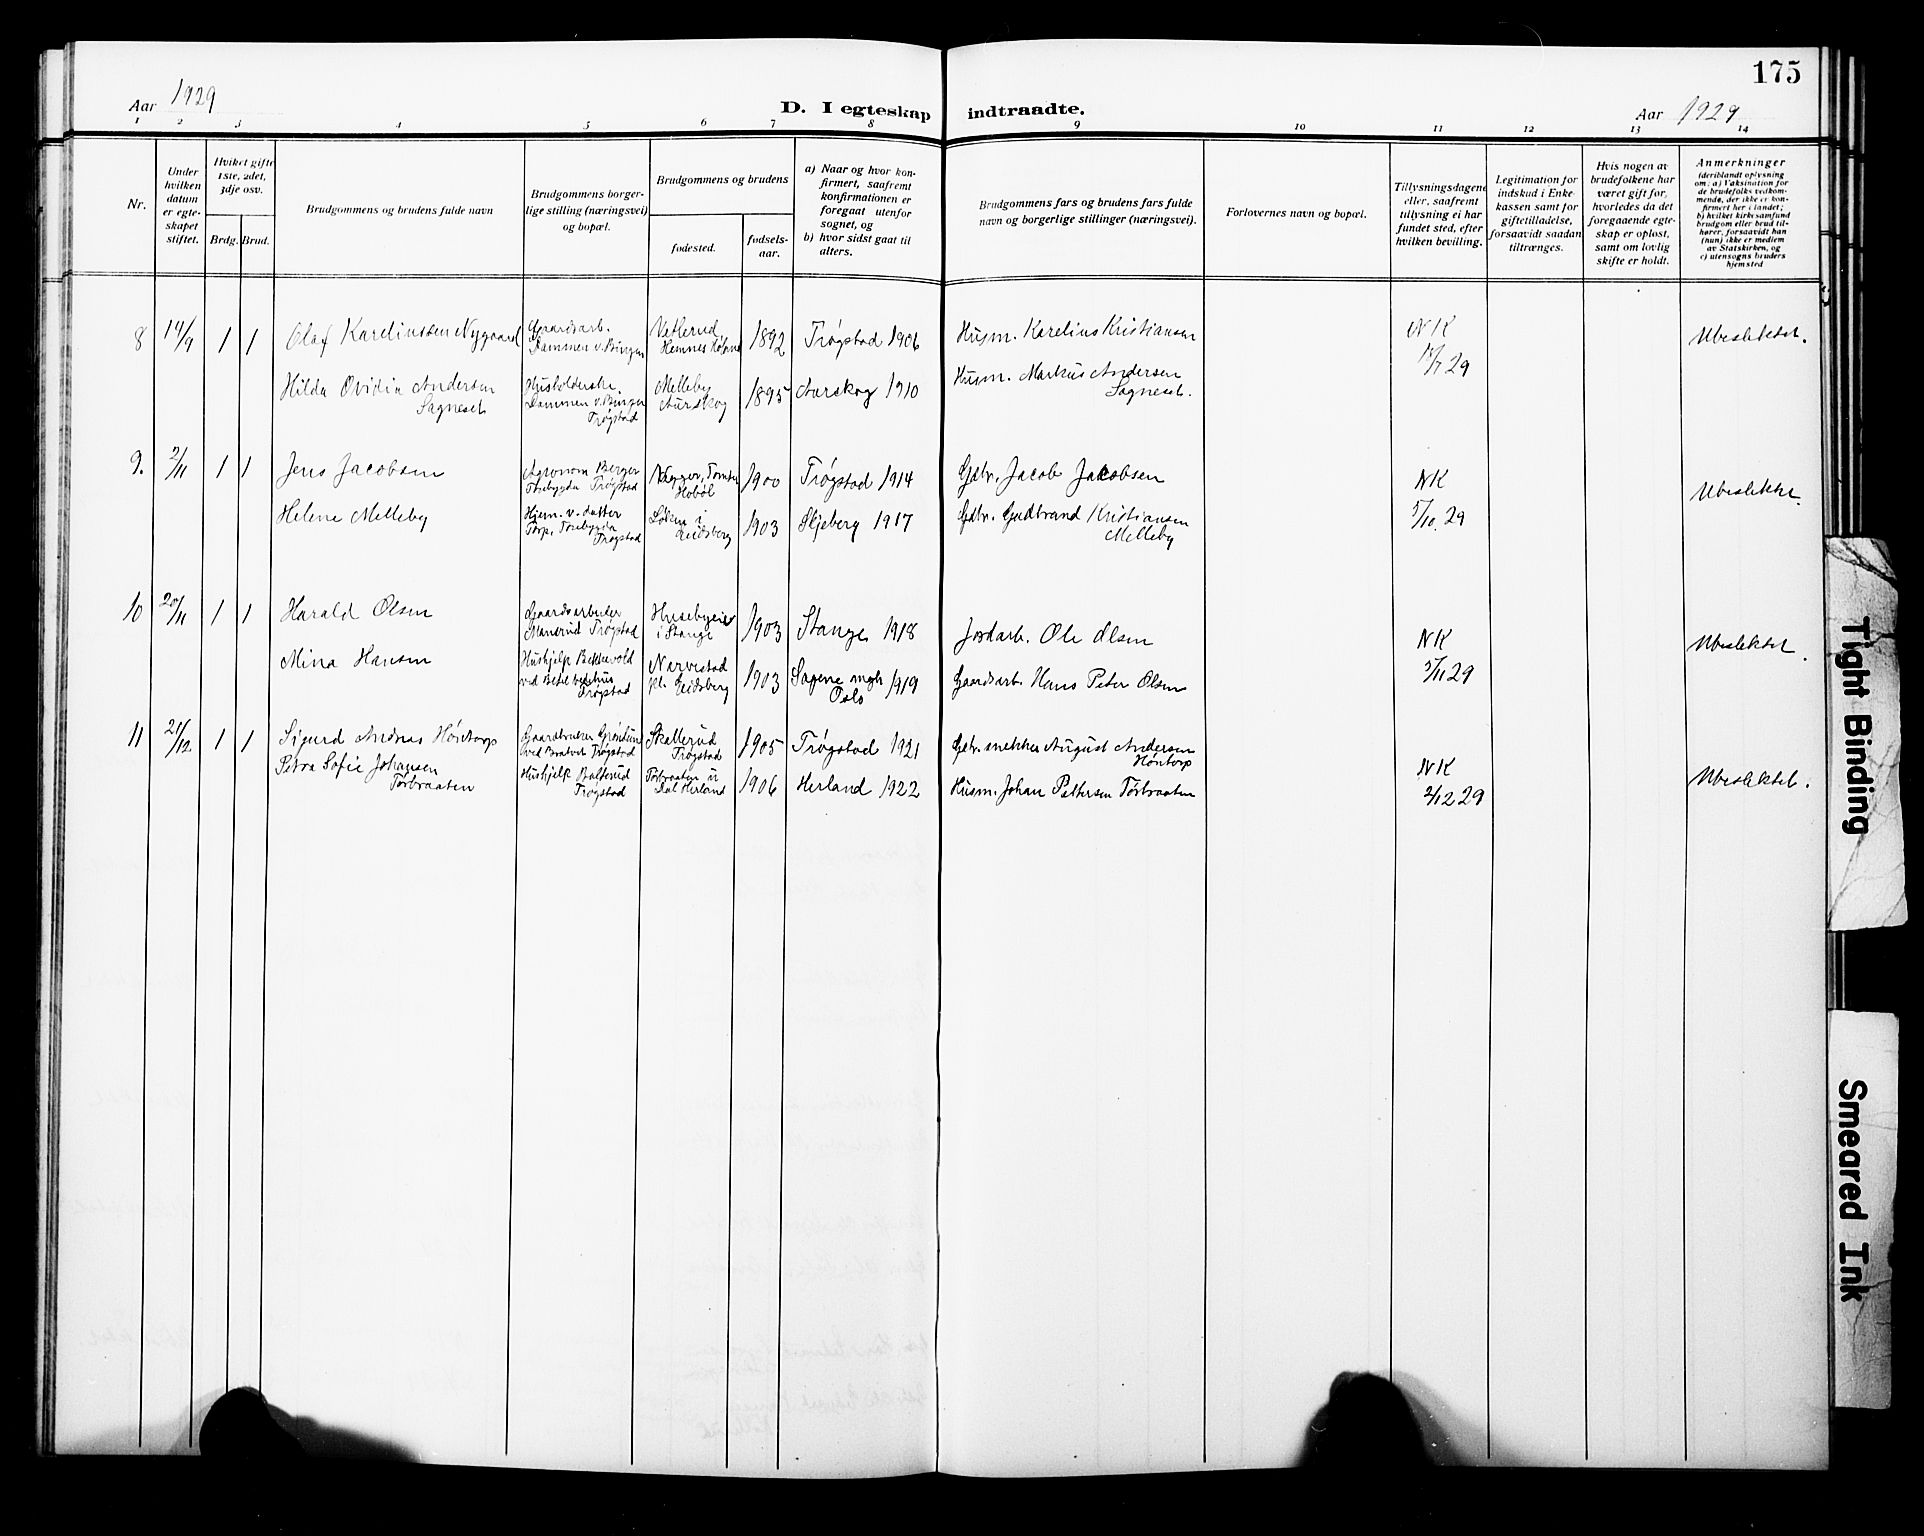 175
Aar 1929
D. I egteskap indtraadte.
Aar 1929
1 2 3 4 5 6 7 8 9 10 11 12 13 14
Nr.
Under
hvilken
datum
er egte-
skapet
stiftet.
Hvilket gifte
1ste, 2det,
3dje osv.
Brdg. Brud.
Brudgommens og brudens fulde navn
Brudgommens borger-
lige stilling (næringsvei)
og bopæl.
Brudgommens og brudens
fødested.
fødsels-
aar.
a) Naar og hvor kon-
firmert, saafremt
konfirmationen er
foregaat utenfor
sognet, og
b) hvor sidst gaat til
alters.
Brudgommens fars og brudens fars fulde
navn og borgerlige stillinger (næringsvei).
Forlovernes navn og bopæl.
Tillysningsdagene
eller, saafremt
tillysning ei har
fundet sted, efter
hvilken bevilling.
Legitimation for
indskud i Enke-
kassen samt for
giftetilladelse,
forsaavidt saadan
tiltrænges.
Hvis nogen av
brudefolkene har
været gift før,
hvorledes da det
foregaaende egte-
skap er opløst,
samt om lovlig
skifte er holdt.
Anmerkninger
(deriblandt oplysning
om: a) Vaksination for
de brudefolks vedkom-
mende, der ikke er kon-
firmert her i landet;
b) hvilket kirkesamfund
brudgom eller brud til-
hører, forsaavidt han
(hun) ikke er medlem
av Statskirken, og
c) utensogns bruders
hjemsted
8 14/9 1 1 Olaf Karelinssen Nygaard
Gaardsarb.
Dammen v. Bingen
Vetlerud
Hemnes Høland
1892 Trøgstad 1906
Husm. Karelius Kristiansen
NK
29
Ubeslektet.
Hilda Ovidia Andersen
Sagneset
Husholderske
Dammen v. Bingen
Trøgstad
Melleby
Aurskog
1895 Aurskog 1910
Husm. Markus Andersen
Sagneset.
9. 2/11 1 1 Jens Jacobsen
Agronom Berger
Trøgstad
Hobøl
1900 Trøgstad 1914
Gdbr. Jacob Jakobsen
NK
5/10 29
Ubeslektet.
Helene Melleby
Hjem. v. datter
Trøgstad
i
Eidsberg
1903 Skjeberg 1917
Gdbr. Gudbrand Kristiansen
Melleby
10 20/11 1 1 Harald Olsen
Gaardsarbeider
Mansrud Trøgstad
Husebyeie
i Stange
1903 Stange 1918
Jordarb. Ole Olsen
NK
5/11 29
Ubeslektet.
Mina Hansen
Hushjelp Bekkevold
ved Betel bedehus
Trøgstad
Narvestad
pl. Eidsberg
1903 Sagene mgh 1919
Oslo
Gaardsarb. Hans Peter Olsen
11 21/12. 1 1 Sigurd Andreas Høntorp
Gaardbruker Grønlund
ved Trøgstad
Skallerud
Trøgstad
1905 Trøgstad 1921
Gdbr. snekker August Andersen
Høntorp
NK
2/12 29
Ubeslektet.
Petra Sofie Johansen
Torbraaten
Hushjelp Balterud
Trøgstad
Torbraaten u
Dal Herland
1906 Herland 1922
Husm. Johan Pettersen Torbraaten
Tight Binding
Smeared Ink